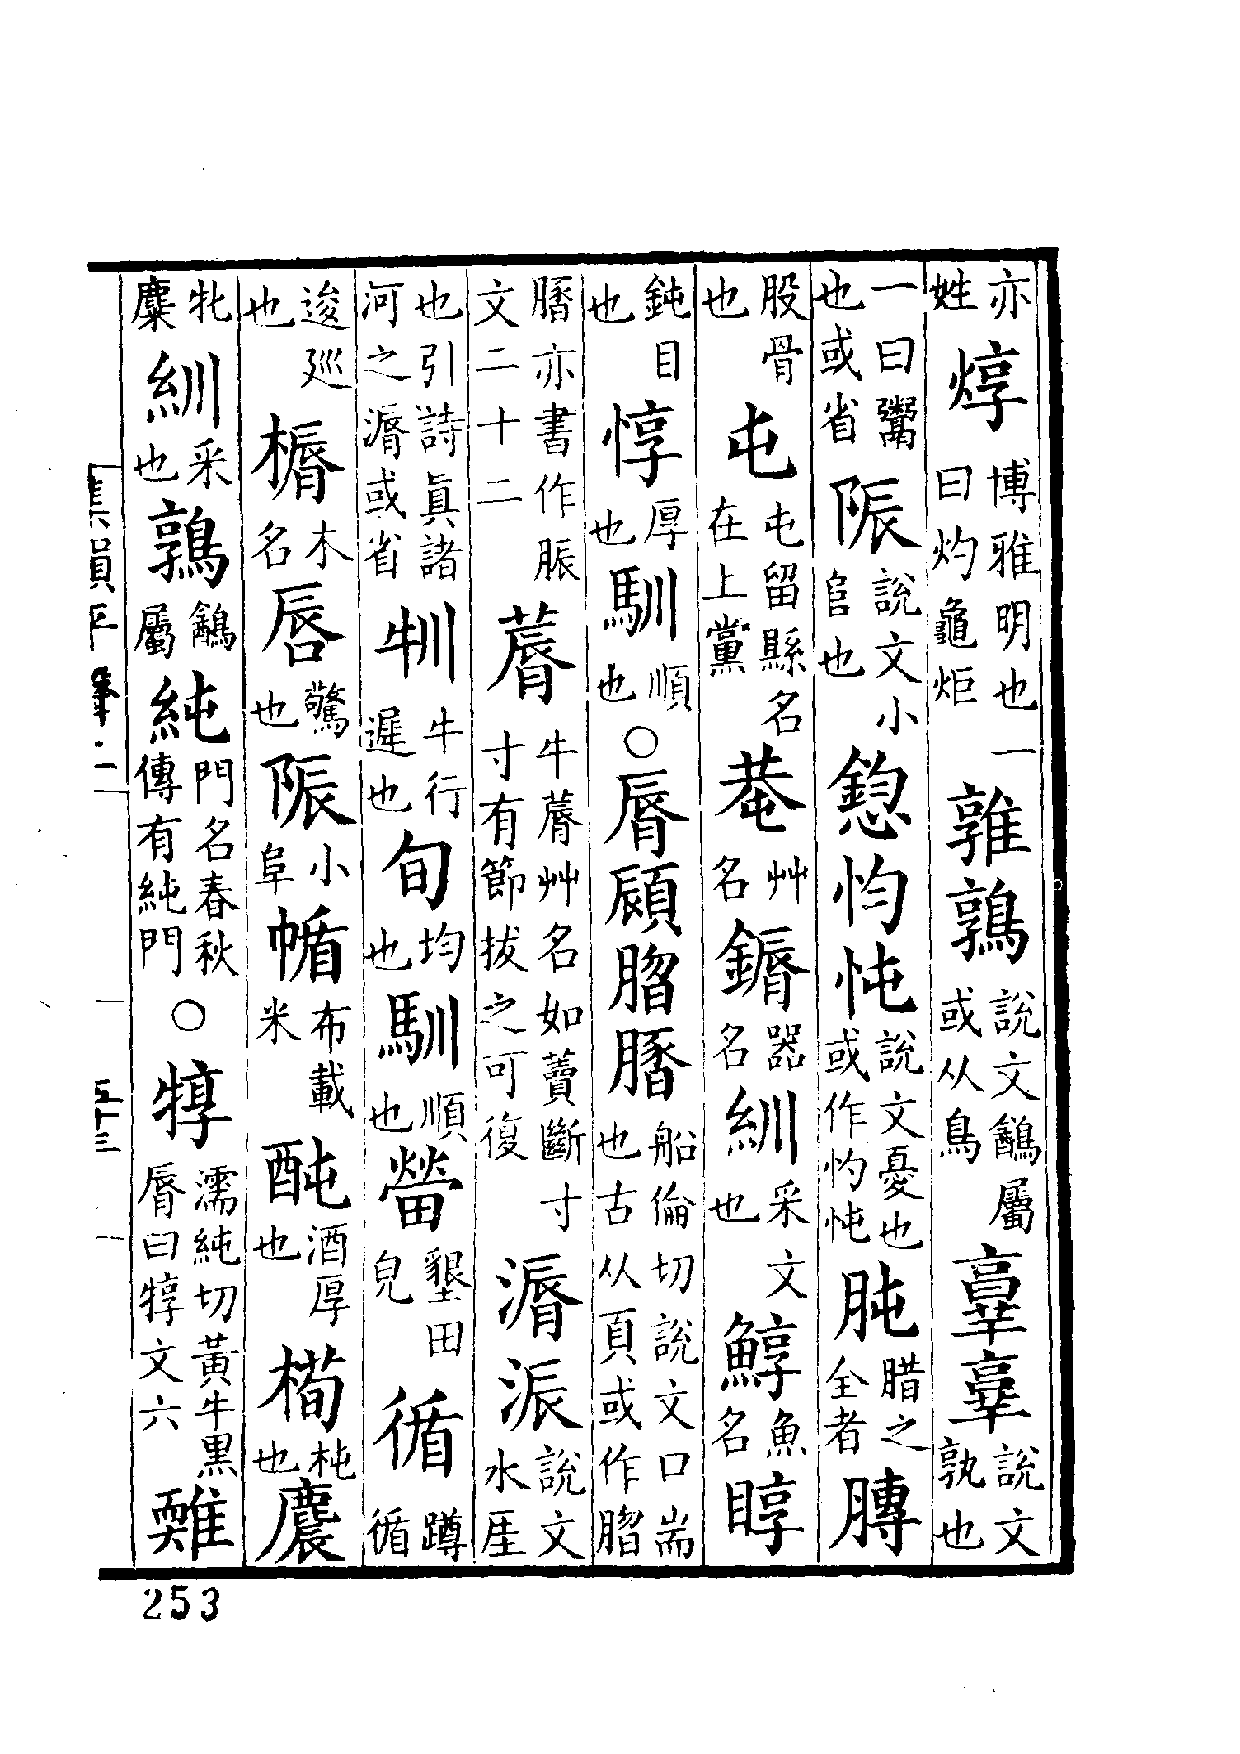 亦姓焞博雅明也一曰灼龜炬鶉說文䧹屬或从鳥𦎧說文孰也
一曰鬻也或省陙說文小𨸏也忳說文憂也或作忳肫腊之全者膞
股骨也屯屯留縣名在上黨菴艸名錞器名紃采文也䱜魚名䁨
鈍目也惇厚也馴順也○脣顅船倫切說文口耑也古从頁或作
亦書作脤文二十二蓐牛蓐艸名如藚斷寸寸有節拔之可復漘㳟說文水厓
也引詩寘諸河之漘或省牰牛行遲也旬均也馴順也墾田皃循蹲循
逡廵也楯木名唇驚也陙小阜楯布載米酒厚也橁杶也麎
牝麋紃采也鶉鷂屬純門名春秋傳有純門○犉濡純切黃牛黑脣曰犉文六
集韻平聲二
五十三
253